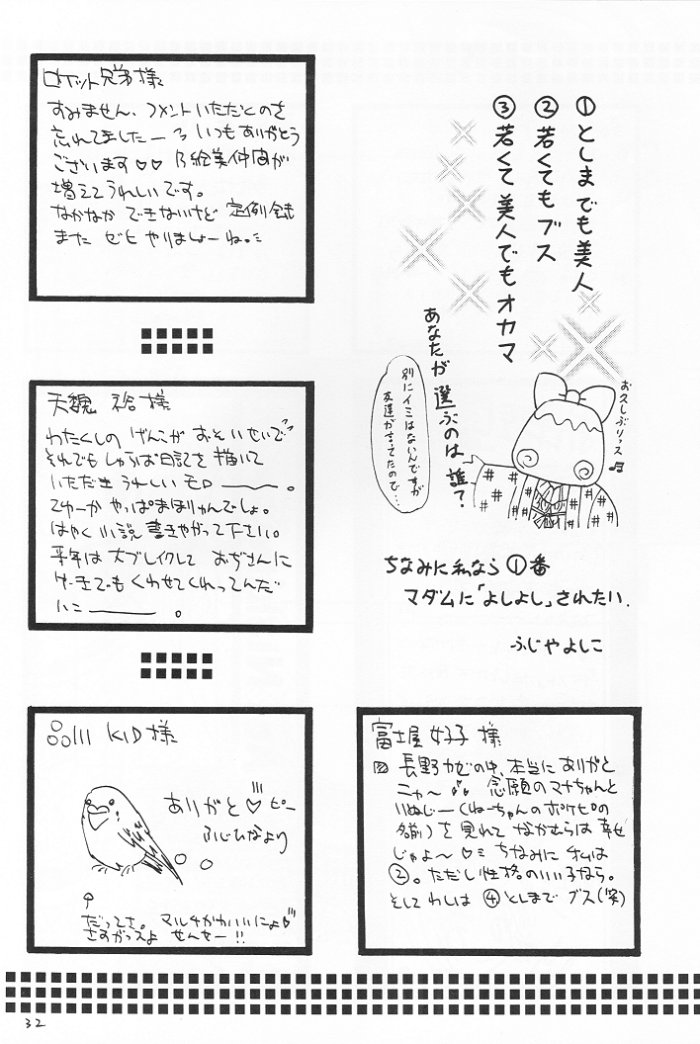 ①としまでも美人
②若くてもブス
③若くて美人でもオカマ
あなたが選ぶのは誰?
別にイミはないんですが
友達が言ってたので…
お久しぶりっス
ちなみに私なら①番
マダムに「よしよし」されたい.
ふじやよしこ
ロケット兄弟様
すみません、コメントいただくのを
忘れてましたー いつもありがとう
ございます♡♡ 乃絵美仲間が
増えてうれしいです。
なかなか できないけど 定例会
また ゼヒ やりましょーね。
天魏 裕様
わたくしの げんこが おそいせいで
それでも しゃちほ日記を 描いて
いただき うれしい モロ――。
てゆーか やっぱ まほりゅんでしょ。
はやく 小説 書きやがって下さい。
来年は 大ブレイクして おぢさんに
ケーキでも くわせてくれってんだ
いこ――。
品川 KID様
ありがと♡ピー
ふじひなより
だってさ。 マルチかわいいにょ
さすがっスよ せんせー!!
富士屋好子 様
長野カゼの中、本当に ありがと
ニャ〜 念願のマナちゃんと
いぬじー(ねーちゃんのポケピの
名前)を 見れて なかむらは 幸せ
じゃよ〜♡ ちなみに オレは
②。ただし性格のいい子なら。
そして わしは ④としまで ブス(笑)
32